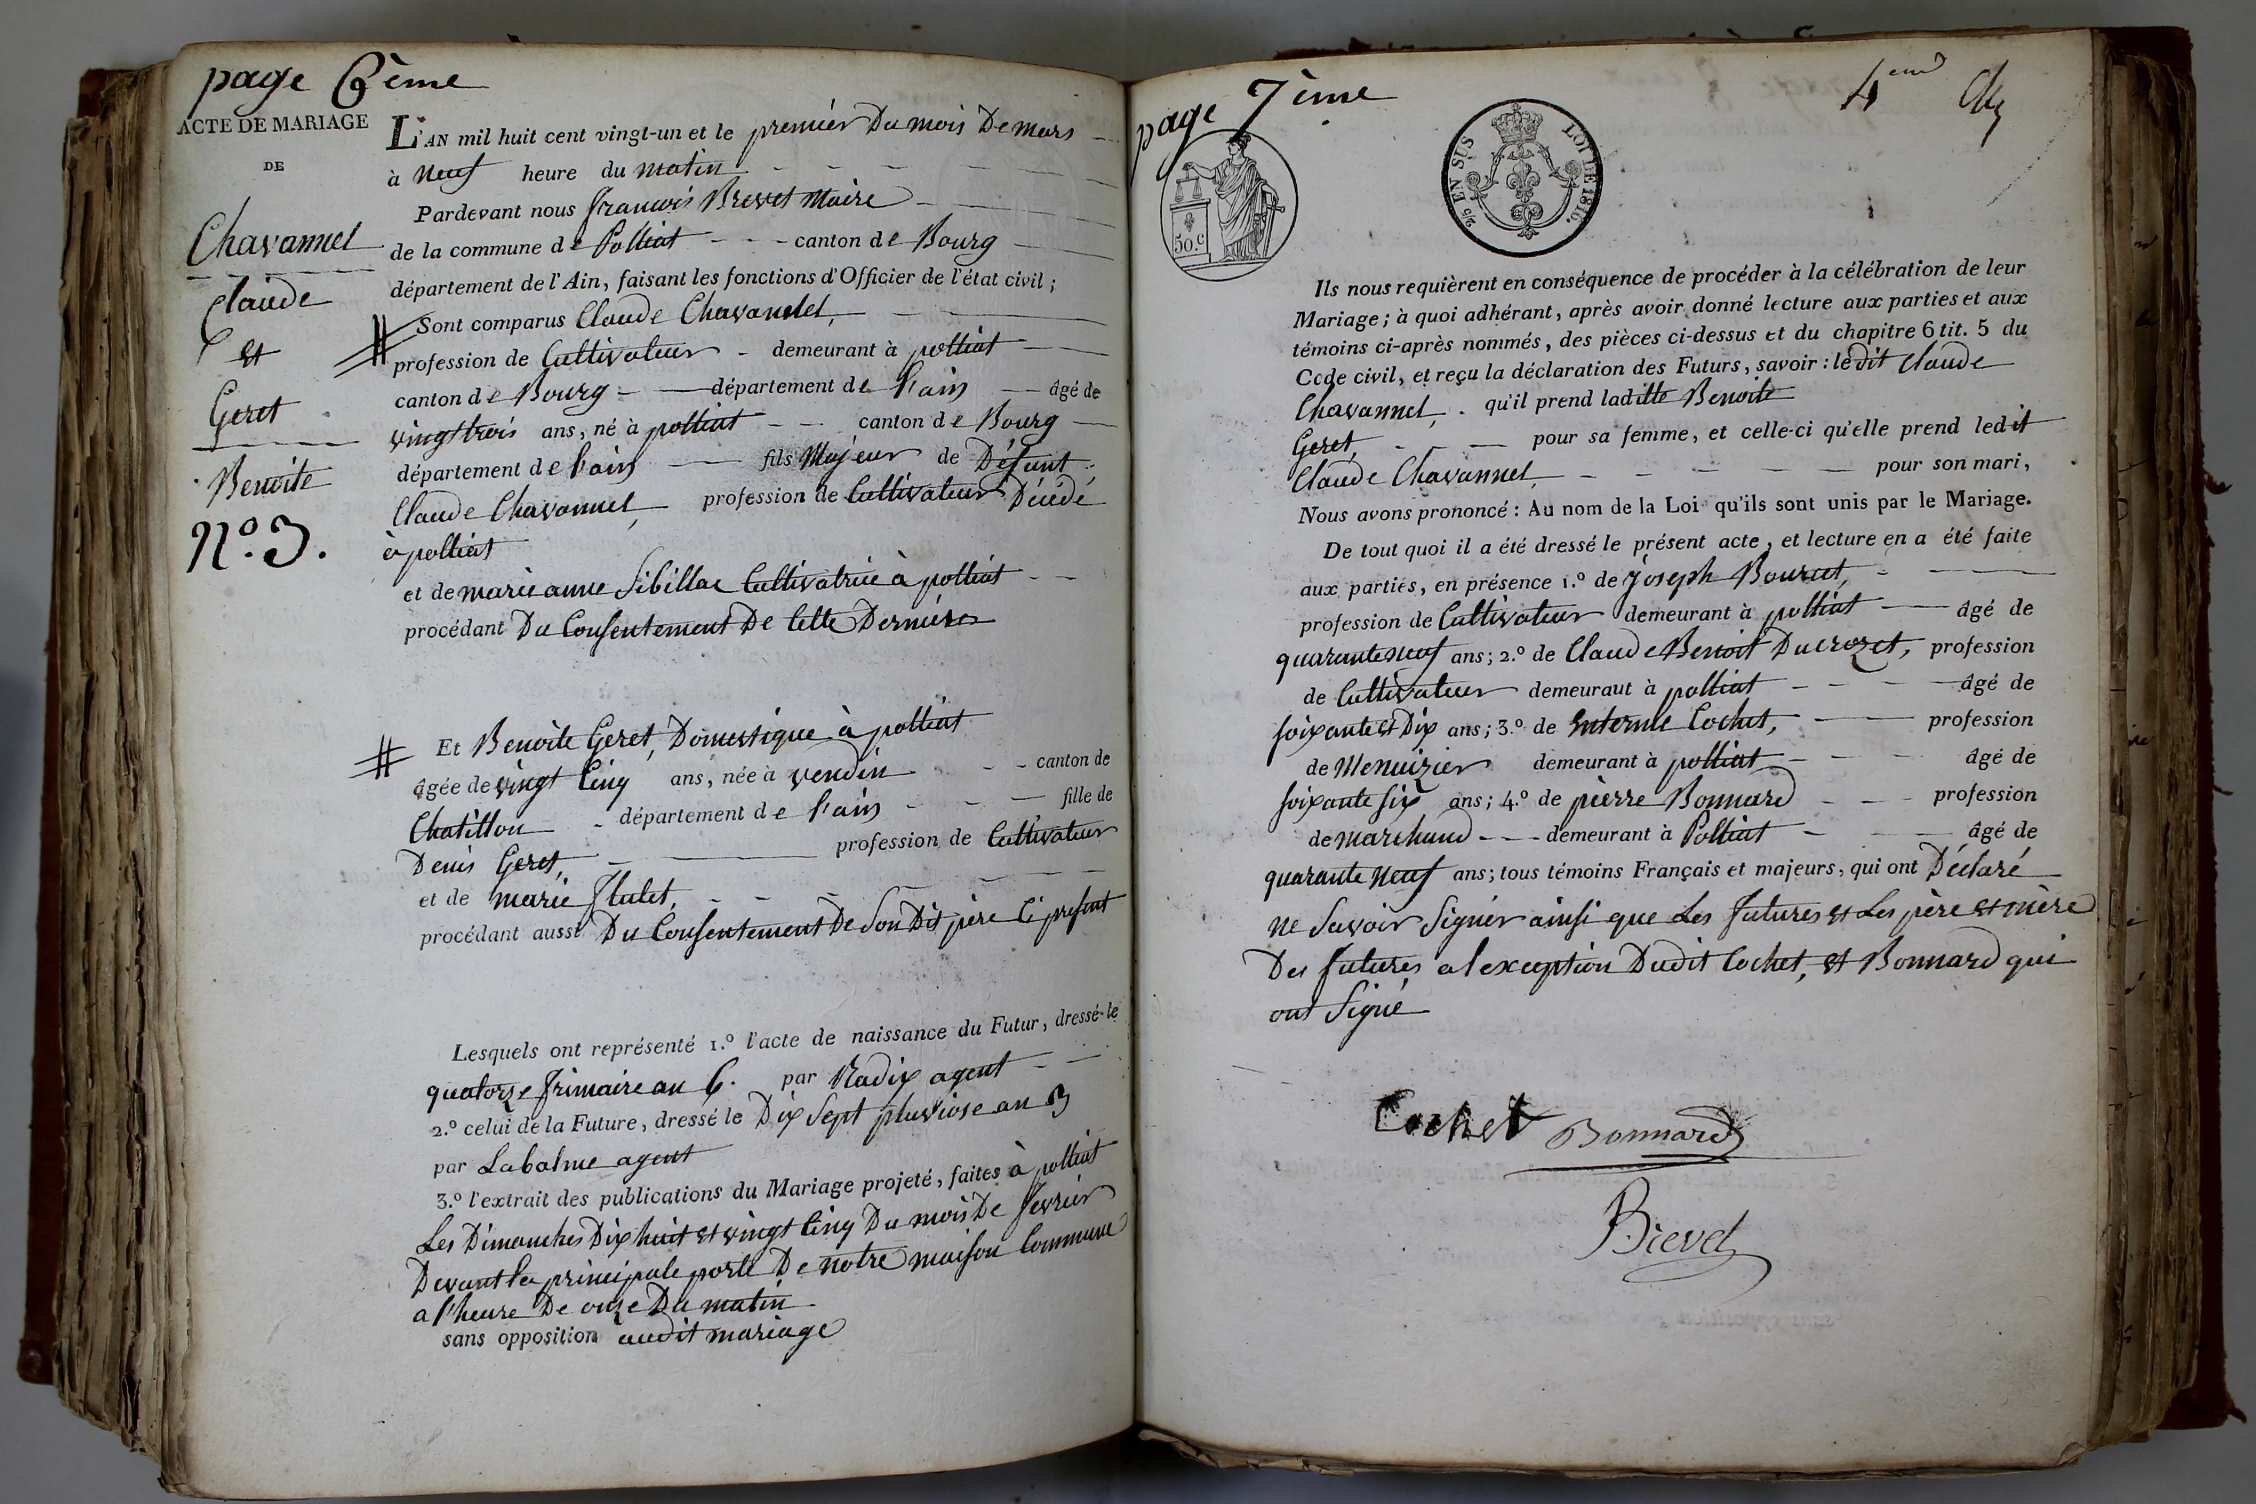 page 6ème
ACTE DE MARIAGE
DE
Chavannel
Claude
et
Geret
Benoite
N.o 3.
L'AN mil huit cent vingt-un et le premiér Du mois De mars
à neuf heure du matin
Pardevant nous françois Brevet Maire
de la commune de Polliat canton de Bourg
département de l'Ain, faisant les fonctions d'Officier de l'état civil ;
Sont comparus Claude Chavannel,
profession de Cultivateur demeurant à polliat
canton de Bourg département de l'ain âgé de
vingt trois ans, né à polliat canton de Bourg
département de l'ain fils Majeur de Défunt
Claude Chavannel, profession de Cultivateur Décédé
à polliat
et de marie anne Sibillac Cultivatrice à polliat
procédant Du Consentement De Cette Derniére
Et Benoite Geret, Domestique à polliat
âgée de vingt Cinq ans, née à vendin canton de
Chatillon département de l'ain fille de
Denis Geret, profession de Cultivateur
et de marie flulet,
procédant aussi Du Consentement De Son Dit père Ci present
Lesquels ont représenté 1.o l'acte de naissance du Futur, dressé le
quatorze frimaire an 6. par Nadix agent
2.o celui de la Future, dressé le Dix Sept pluviose an 3
par Labalme agent
3.o l'extrait des publications du Mariage projeté, faites à polliat
Les Dimanches Dix huit et vingt Cinq Du mois De fevriér
Devant la principale porte De notre maison Commune
a l'heure De onze Du matin
sans opposition audit mariage
page 7ème
4eme
50.c
2/5 EN SUS LOI DE 1816.
Ils nous requièrent en conséquence de procéder à la célébration de leur
Mariage ; à quoi adhérant, après avoir donné lecture aux parties et aux
témoins ci-après nommés, des pièces ci-dessus et du chapitre 6 tit. 5 du
Code civil, et reçu la déclaration des Futurs, savoir : le dit Claude
Chavannel, qu'il prend laditte Benoite
Geret, pour sa femme, et celle-ci qu'elle prend ledit
Claude Chavannel, pour son mari,
Nous avons prononcé : Au nom de la Loi qu'ils sont unis par le Mariage.
De tout quoi il a été dressé le présent acte, et lecture en a été faite
aux parties, en présence 1.o de joseph Bourcet,
profession de Cultivateur demeurant à polliat âgé de
quarante neuf ans ; 2.o de Claude Benoit Ducrozet, profession
de Cultivateur demeuraut à polliat âgé de
soixante et Dix ans ; 3.o de Cochet, profession
de Menuizier demeurant à polliat âgé de
soixante six ans ; 4.o de pierre Bonnard profession
de marchand demeurant à Polliat âgé de
quarante neuf ans ; tous témoins Français et majeurs, qui ont Déclaré
ne Savoir Signér ainsi que Les futures et Les père et mère
Des futures a l'exception Dudit Cochet, et Bonnard qui
ont Signé
Cochet Bonnard
Brevet